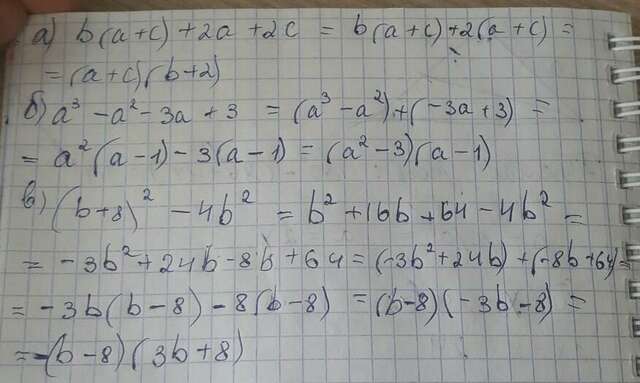 а) b(a+c)+2a+2c = b(a+c)+2(a+c) =
= (a+c)(b+2)
б) a³ - a² - 3a + 3 = (a³ - a²) + (-3a + 3) =
= a² (a-1) - 3(a-1) = (a² - 3)(a-1)
в) (b+8)² - 4b² = b² + 16b + 64 - 4b² =
= -3b² + 24b - 8b + 64 = (-3b² + 24b) + (-8b + 64) =
= -3b(b-8) - 8(b-8) = (b-8)(-3b-8) =
= -(b-8)(3b+8)